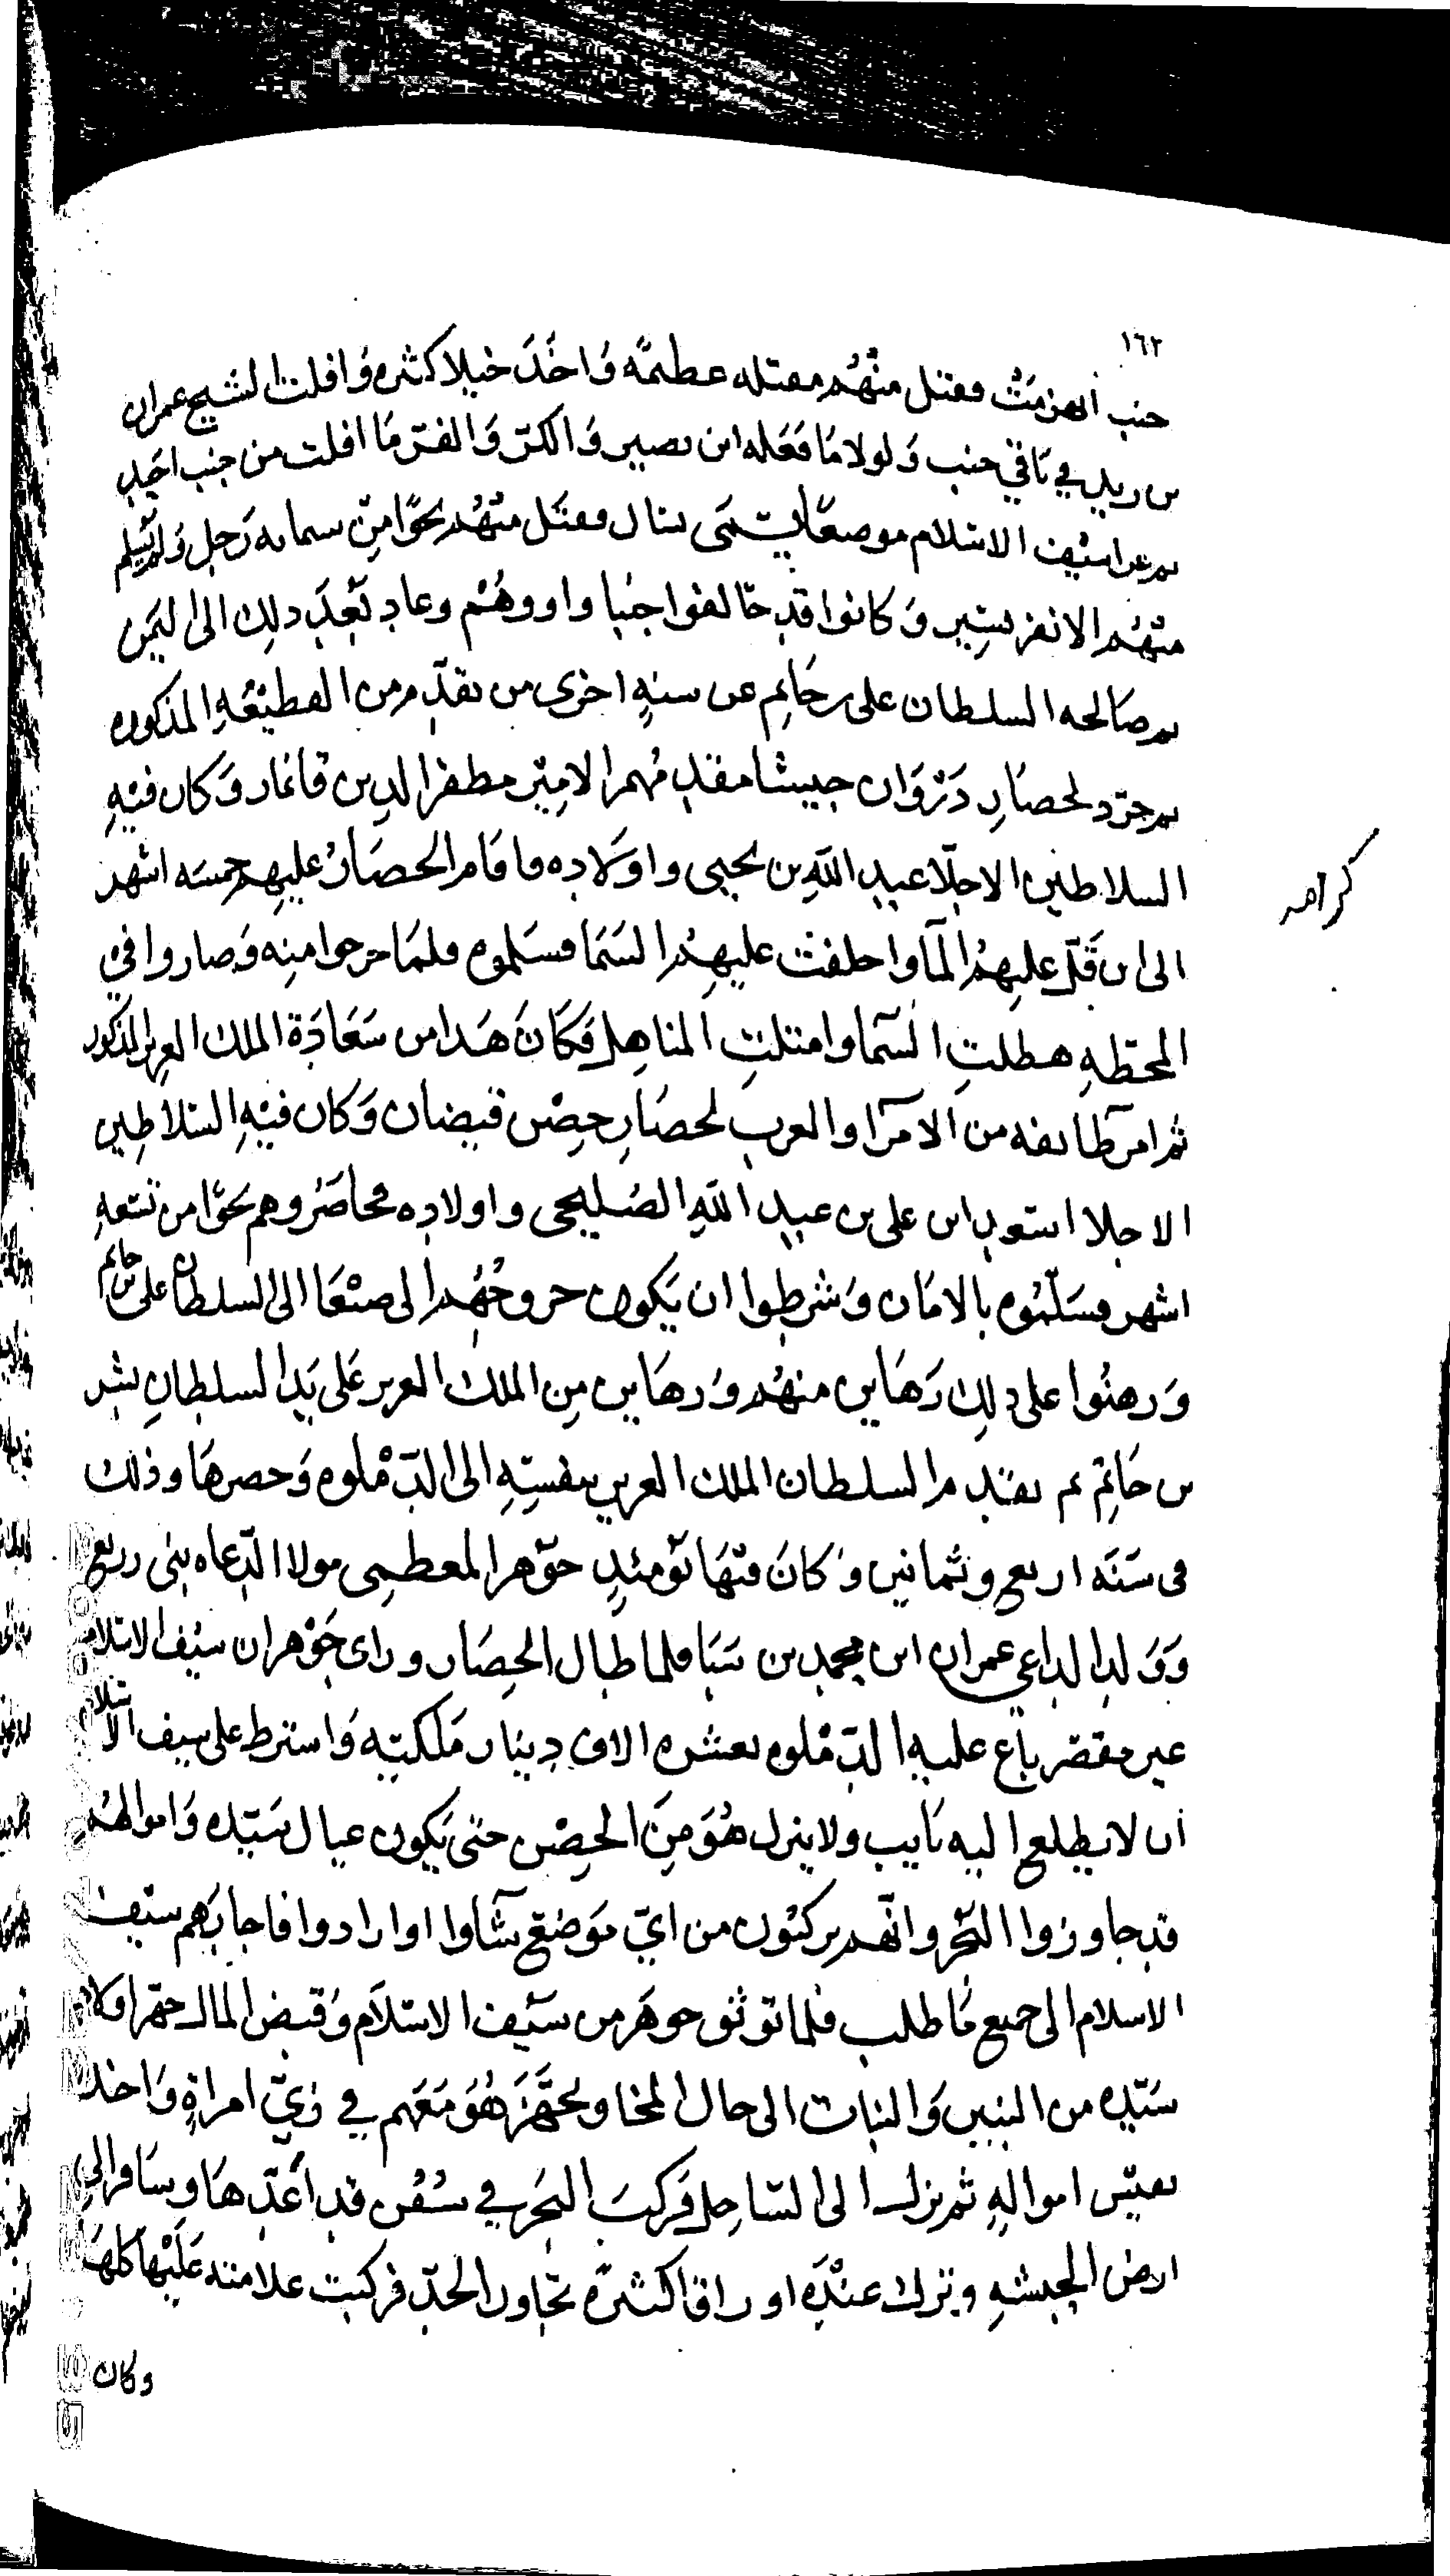 ١٦٢
جنب انهزمت فقتل منهم مقتله عظيمة واخذ خيلا كثيره وافلت الشيخ عمران
بن زيد في باقي جنب ولولا ما فعله ابن بصير والكر والفر ما افلت من جنب احد
ثم غزا سيف الاسلام موضعا يسمى فقتل منهم نحوا من رجل ولم يسلم
منهم الا نفر يسير وكانوا قد حالفوا جنبا واووهم وعاد بعد ذلك الى اليمن
ثم صالحه السلطان على بن حاتم عن سنة اخرى من تقدم من القطيعة المذكوره
ثم جرد لحصار دروان جيشا مقدمهم الامير مظفر الدين قايماز وكان فيه
السلاطين الاجلا عبد الله بن يحيى واولاده فاقام الحصار عليهم خمسه اشهر
الى ان قل عليهم الما واخلفت عليهم السما فسلموه فلما خرجوا منه وصاروا في
المحطة هطلت السما وامتلت المناهل فكان هذا من سعادة الملك العزيز المذكور
ثم امر طايفه من الامرا والعرب لحصار حصن قيضان وكان فيه السلاطين
الاجلا اسعد ابن على بن عبد الله الصليحى واولاده فحاصروهم نحوا من تسعة
اشهر فسلموه بالامان وشرطوا ان يكون خروجهم الى صنعا الى السلطان على بن حاتم
ورهنوا على ذلك رهاين منهم ورهاين من الملك العزيز على يد السلطان بشر
بن حاتم ثم تقدم السلطان الملك العزيز بنفسه الى الدملوه وحصرها وذلك
فى سنة اربع وثمانين وكان فيها يومئذ جوهر المعظمى مولا الدعاه بنى زريع
وولد الداعي عمران ابن محمد بن سبا فلما طال الحصار وراى جوهر ان سيف الاسلام
غير مقصر باع عليه الدملوه بعشره الاف دينار ملكيه واشترط على سيف الاسلام
ان لا يطلع اليه نايب ولا ينزل هو من الحصن حتى يكون عيال سيده واموالهم
قد جاوزوا البحر وانهم يركبون من اي موضع شاوا او ارادوا فاجابهم سيف
الاسلام الى جميع ما طلب فلما توثق جوهر من سيف الاسلام وقبض المال جهز اولاد
سيده من البنين والبنات الى المخا وتجهز هو معهم في زي امراة واخذ
نفيس امواله ثم نزل الى الساحل فركب البحر في سفن قد اعدها وسافر الى
ارض الحبشه وترك عنده اوراقا كثيرة تجاوز الحد فركبت علامته عليها كلها
وكان